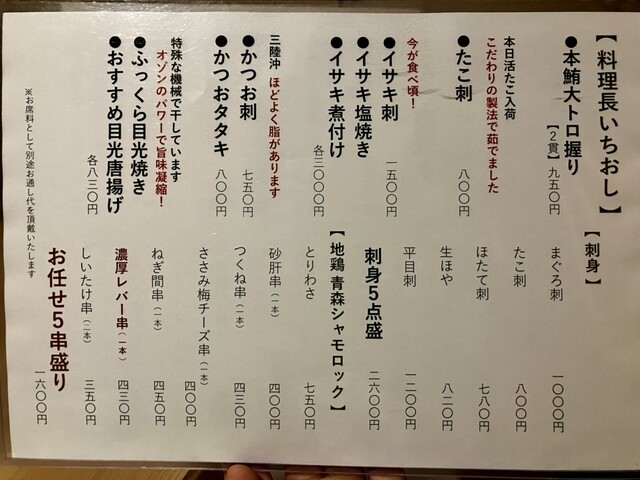 【料理長いちおし】
●本鮪大トロ握り
【2貫】九五〇円
本日活たこ入荷
こだわりの製法で茹でました
●たこ刺
八〇〇円
今が食べ頃！
●イサキ刺
一五〇〇円
●イサキ塩焼き
●イサキ煮付け
各三〇〇〇円
三陸沖 ほどよく脂があります
●かつお刺
七五〇円
●かつおタタキ
八〇〇円
特殊な機械で干しています
オゾンのパワーで旨味凝縮！
●ふっくら目光焼き
●おすすめ目光唐揚げ
各八三〇円
※お席料として別途お通し代を頂戴いたします
【刺身】
まぐろ刺 一〇〇〇円
たこ刺 八〇〇円
ほたて刺 七八〇円
生ほや 八二〇円
平目刺 一二〇〇円
刺身5点盛 二六〇〇円
【地鶏 青森シャモロック】
とりわさ 七五〇円
砂肝串（一本） 四〇〇円
つくね串（一本） 四三〇円
ささみ梅チーズ串（一本） 四〇〇円
ねぎ間串（一本） 四五〇円
濃厚レバー串（一本） 四三〇円
しいたけ串（二本） 三五〇円
お任せ5串盛り 一六〇〇円